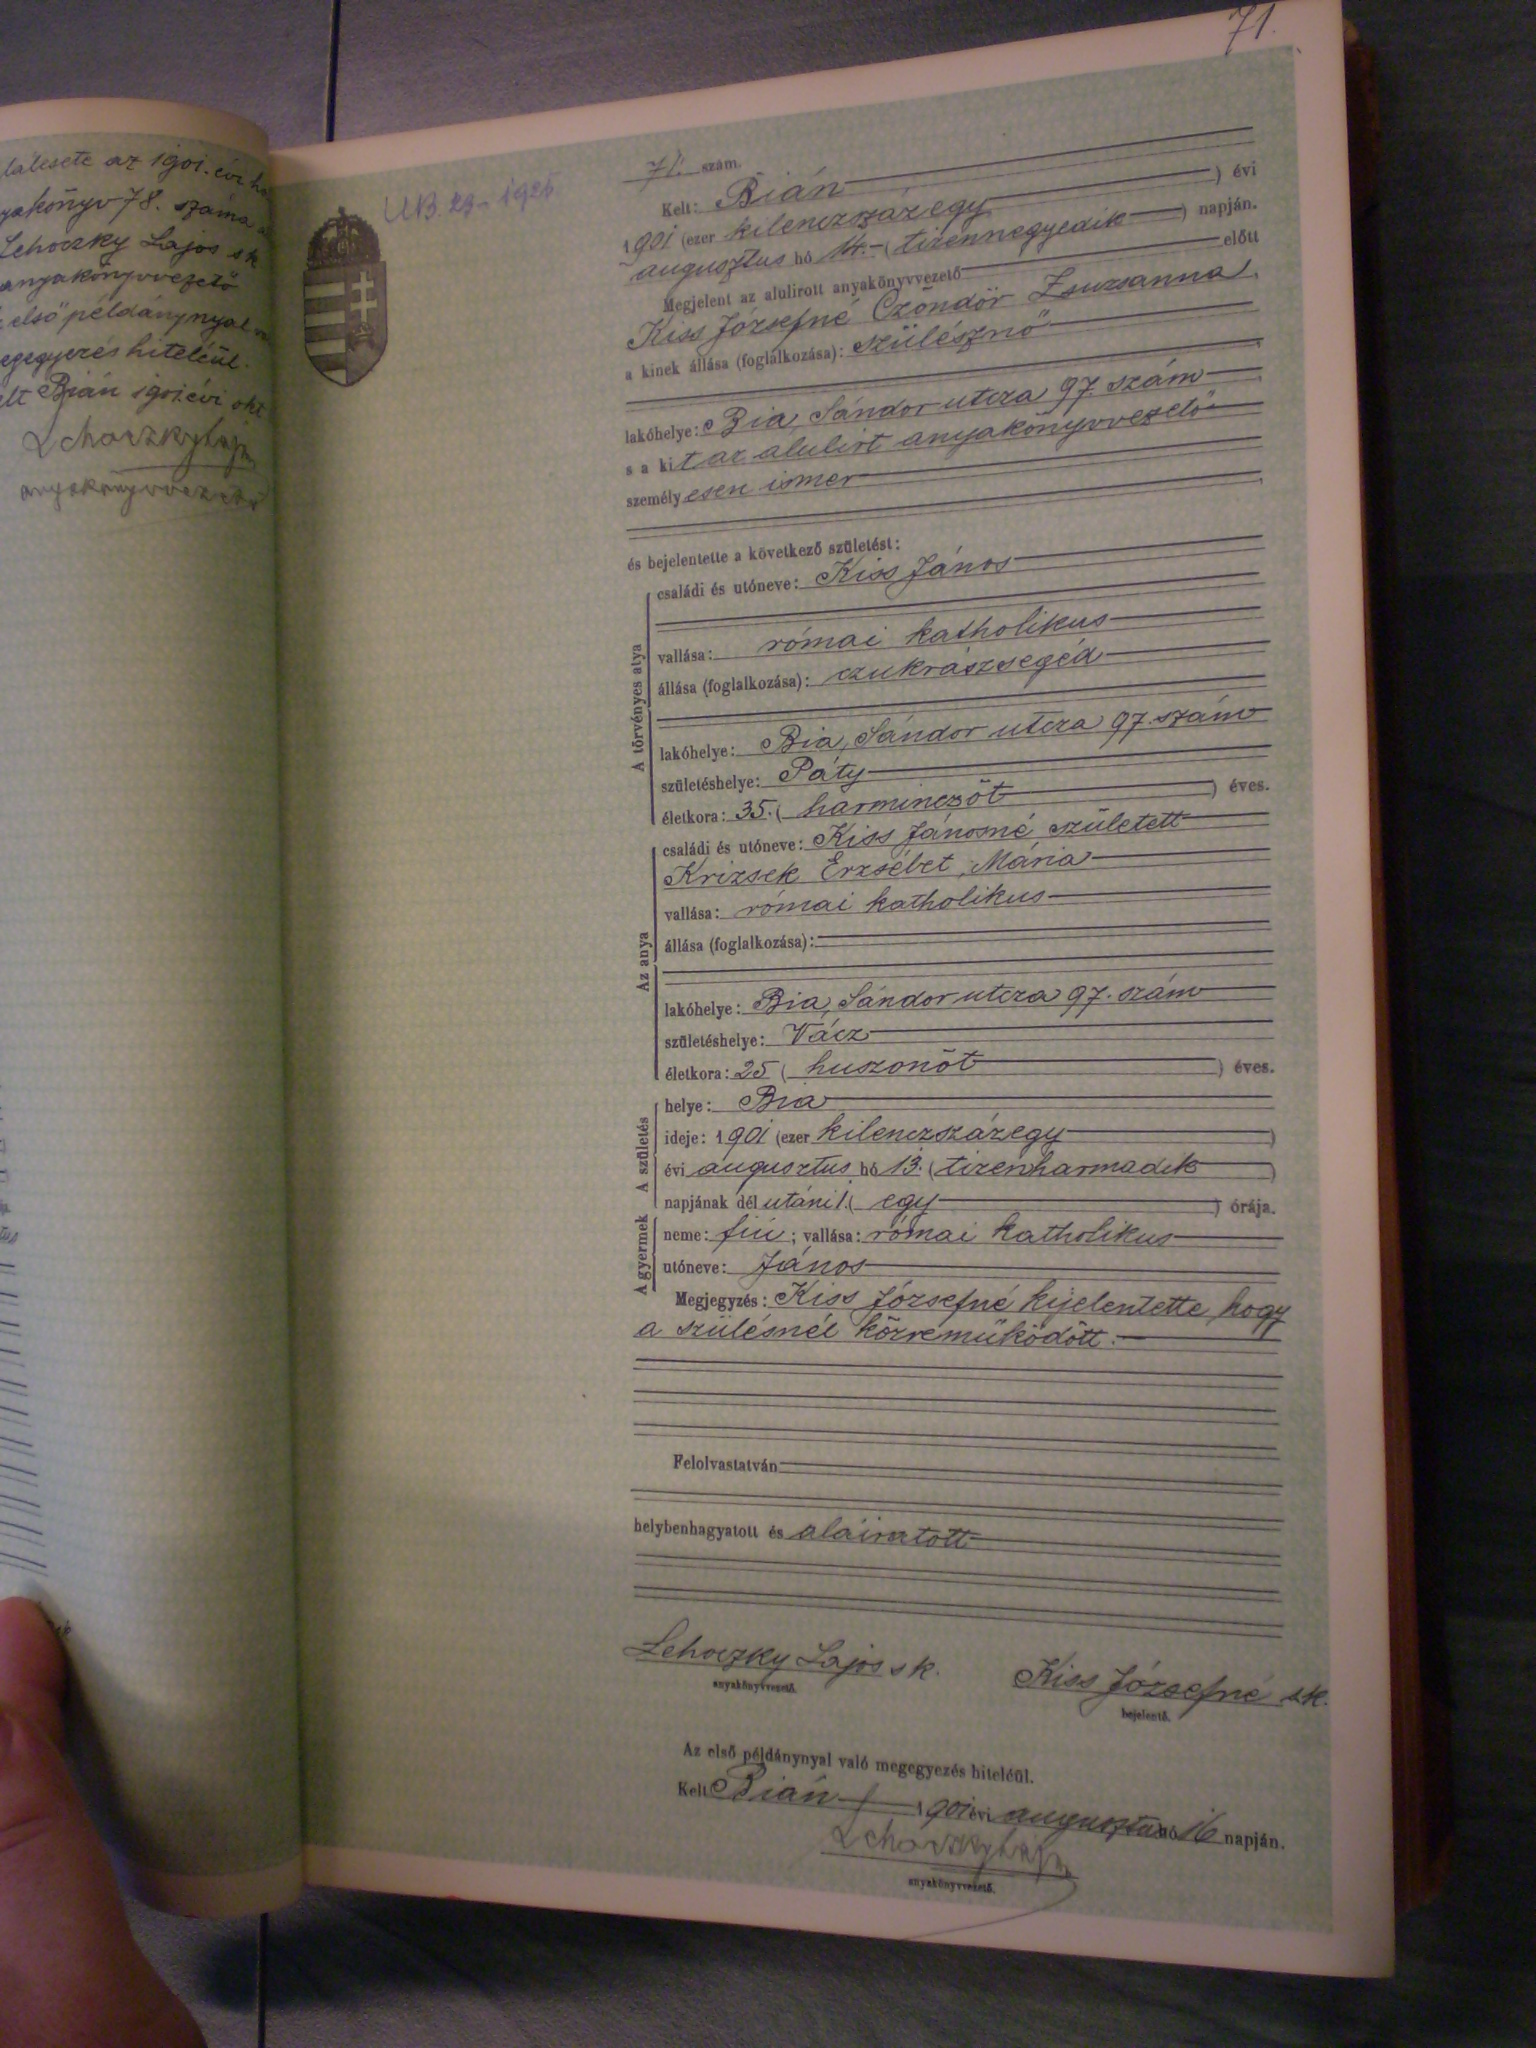 az 1901. évi
78. száma
Lehoczky Lajos sk
anyakönyvvezető
első példánynyal
hiteléül.
Bián 1901. évi okt
Lehoczky Lajos
anyakönyvvezető
71.
UB. 23 - 1925
71. szám.
Kelt: Bián
1901 (ezer kilenczszázegy ) évi
augusztus hó 14.- ( tizennegyedik ) napján.
Megjelent az alulirott anyakönyvvezető előtt
Kiss Józsefné Czöndör Zsuzsanna,
a kinek állása (foglalkozása): szülésznő
lakóhelye: Bia, Sándor utcza 97. szám
s a kit az alulirt anyakönyvvezető
személyesen ismer
és bejelentette a következő születést:
A törvényes atya
családi és utóneve: Kiss János
vallása: római katholikus
állása (foglalkozása): czukrászsegéd
lakóhelye: Bia, Sándor utcza 97. szám
születéshelye: Páty
életkora: 35. ( harminczöt ) éves.
Az anya
családi és utóneve: Kiss Jánosné született
Krizsek Erzsébet, Mária
vallása: római katholikus
állása (foglalkozása):
lakóhelye: Bia, Sándor utcza 97. szám
születéshelye: Vácz
életkora: 25 ( huszonöt ) éves.
A születés
helye: Bia
ideje: 1901 (ezer kilenczszázegy )
évi augusztus hó 13. ( tizenharmadik )
napjának dél utáni 1. ( egy ) órája.
A gyermek
neme: fiú ; vallása: római katholikus
utóneve: János
Megjegyzés: Kiss Józsefné kijelentette, hogy
a szülésnél közreműködött.
Felolvastatván
helybenhagyatott és aláiratott
Lehoczky Lajos sk.
anyakönyvvezető.
Kiss Józsefné sk.
bejelentő.
Az első példánynyal való megegyezés hiteléül.
Kelt Bián 1901 évi augusztus hó 16 napján.
Lehoczky Lajos
anyakönyvvezető.